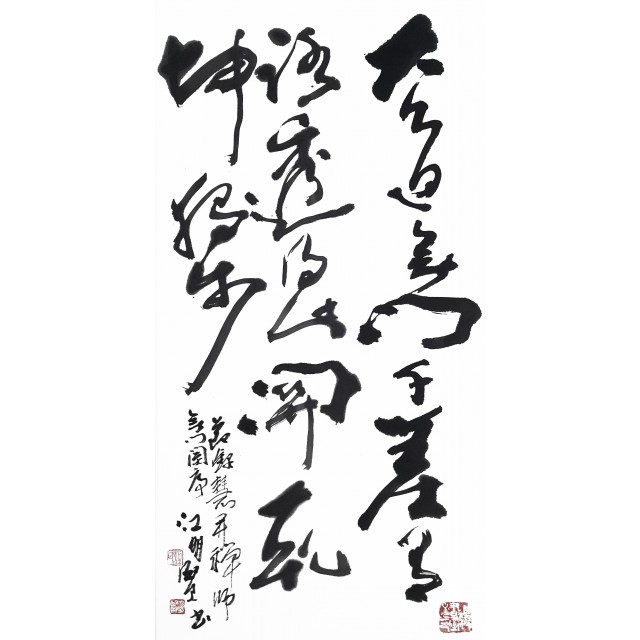 大道無門千差有
路透得此關乾
坤獨步
節錄慧開禪師
無門關序 江明賢書